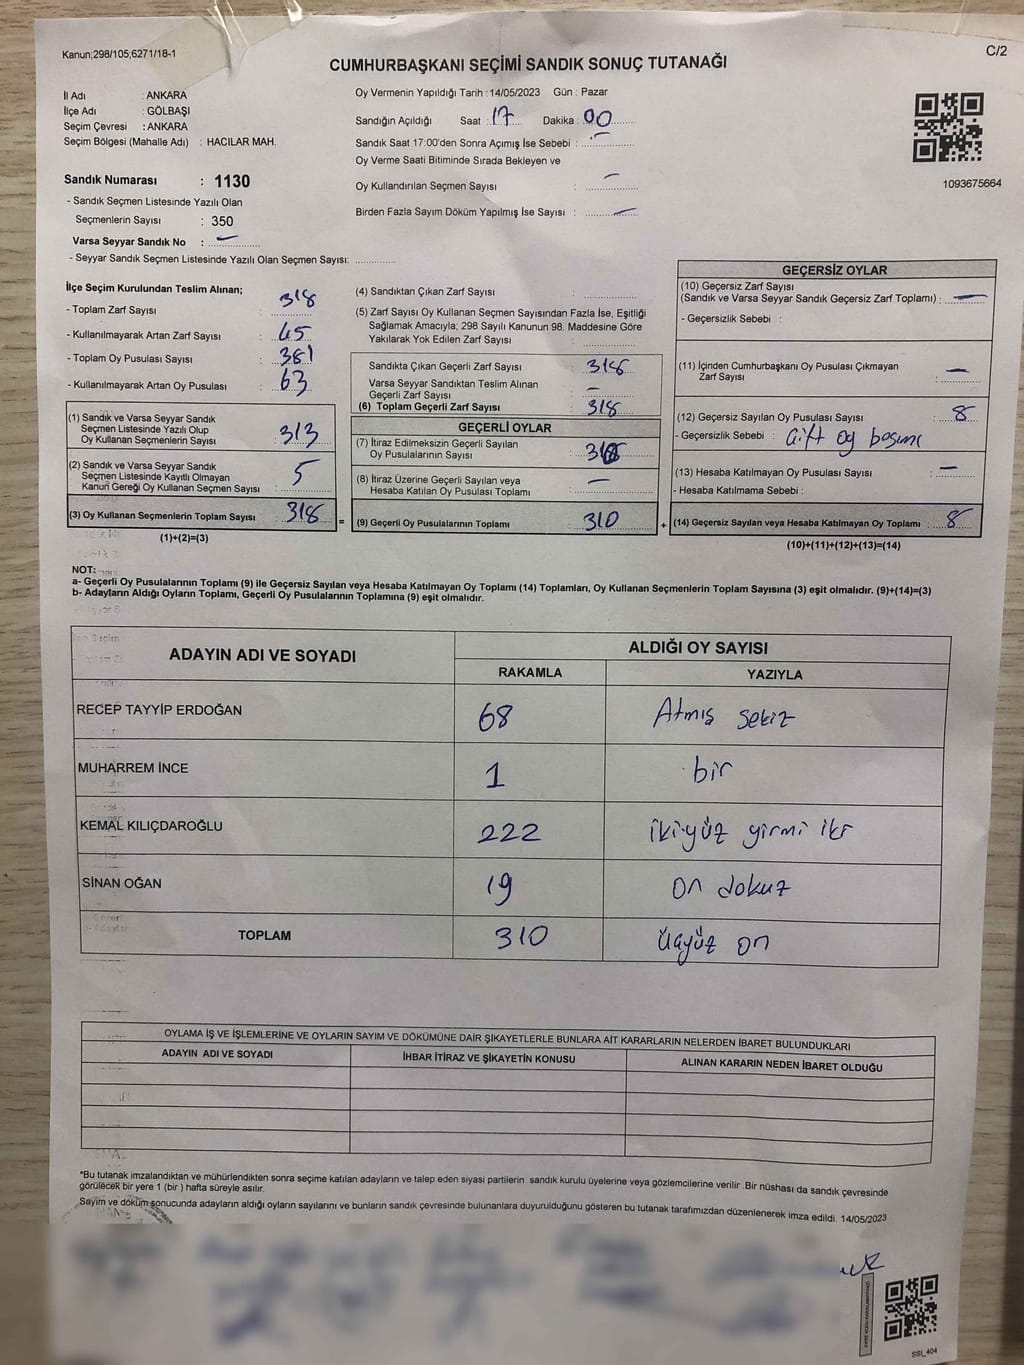 Kanun;298/105;6271/18-1
C/2
CUMHURBAŞKANI SEÇİMİ SANDIK SONUÇ TUTANAĞI
İl Adı : ANKARA
İlçe Adı : GÖLBAŞI
Seçim Çevresi : ANKARA
Seçim Bölgesi (Mahalle Adı) : HACILAR MAH.
Sandık Numarası : 1130
- Sandık Seçmen Listesinde Yazılı Olan
Seçmenlerin Sayısı : 350
Varsa Seyyar Sandık No : —
- Seyyar Sandık Seçmen Listesinde Yazılı Olan Seçmen Sayısı:
Oy Vermenin Yapıldığı Tarih : 14/05/2023 Gün : Pazar
Sandığın Açıldığı Saat : 17 Dakika : 00
Sandık Saat 17:00'den Sonra Açımış İse Sebebi : —
Oy Verme Saati Bitiminde Sırada Bekleyen ve
Oy Kullandırılan Seçmen Sayısı : —
Birden Fazla Sayım Döküm Yapılmış İse Sayısı : —
1093675664
İlçe Seçim Kurulundan Teslim Alınan;
- Toplam Zarf Sayısı : 318
- Kullanılmayarak Artan Zarf Sayısı : 45
- Toplam Oy Pusulası Sayısı : 381
- Kullanılmayarak Artan Oy Pusulası : 63
(1) Sandık ve Varsa Seyyar Sandık
Seçmen Listesinde Yazılı Olup
Oy Kullanan Seçmenlerin Sayısı : 313
(2) Sandık ve Varsa Seyyar Sandık
Seçmen Listesinde Kayıtlı Olmayan
Kanun Gereği Oy Kullanan Seçmen Sayısı : 5
(3) Oy Kullanan Seçmenlerin Toplam Sayısı : 318
(1)+(2)=(3)
(4) Sandıktan Çıkan Zarf Sayısı :
(5) Zarf Sayısı Oy Kullanan Seçmen Sayısından Fazla İse, Eşitliği
Sağlamak Amacıyla; 298 Sayılı Kanunun 98. Maddesine Göre
Yakılarak Yok Edilen Zarf Sayısı :
Sandıkta Çıkan Geçerli Zarf Sayısı : 318
Varsa Seyyar Sandıktan Teslim Alınan
Geçerli Zarf Sayısı : —
(6) Toplam Geçerli Zarf Sayısı : 318
GEÇERLİ OYLAR
(7) İtiraz Edilmeksizin Geçerli Sayılan
Oy Pusulalarının Sayısı : 310
(8) İtiraz Üzerine Geçerli Sayılan veya
Hesaba Katılan Oy Pusulası Toplamı : —
= (9) Geçerli Oy Pusulalarının Toplamı : 310
GEÇERSİZ OYLAR
(10) Geçersiz Zarf Sayısı
(Sandık ve Varsa Seyyar Sandık Geçersiz Zarf Toplamı) : —
- Geçersizlik Sebebi :
(11) İçinden Cumhurbaşkanı Oy Pusulası Çıkmayan
Zarf Sayısı : —
(12) Geçersiz Sayılan Oy Pusulası Sayısı : 8
- Geçersizlik Sebebi : Çift oy basımı
(13) Hesaba Katılmayan Oy Pusulası Sayısı : —
- Hesaba Katılmama Sebebi :
+ (14) Geçersiz Sayılan veya Hesaba Katılmayan Oy Toplamı : 8
(10)+(11)+(12)+(13)=(14)
NOT:
a- Geçerli Oy Pusulalarının Toplamı (9) ile Geçersiz Sayılan veya Hesaba Katılmayan Oy Toplamı (14) Toplamları, Oy Kullanan Seçmenlerin Toplam Sayısına (3) eşit olmalıdır. (9)+(14)=(3)
b- Adayların Aldığı Oyların Toplamı, Geçerli Oy Pusulalarının Toplamına (9) eşit olmalıdır.
ADAYIN ADI VE SOYADI
ALDIĞI OY SAYISI
RAKAMLA YAZIYLA
RECEP TAYYİP ERDOĞAN 68 Atmış sekiz
MUHARREM İNCE 1 bir
KEMAL KILIÇDAROĞLU 222 ikiyüz yirmi iki
SİNAN OĞAN 19 on dokuz
TOPLAM 310 üçyüz on
OYLAMA İŞ VE İŞLEMLERİNE VE OYLARIN SAYIM VE DÖKÜMÜNE DAİR ŞİKAYETLERLE BUNLARA AİT KARARLARIN NELERDEN İBARET BULUNDUKLARI
ADAYIN ADI VE SOYADI İHBAR İTİRAZ VE ŞİKAYETİN KONUSU ALINAN KARARIN NEDEN İBARET OLDUĞU
*Bu tutanak imzalandıktan ve mühürlendikten sonra seçime katılan adayların ve talep eden siyasi partilerin sandık kurulu üyelerine veya gözlemcilerine verilir .Bir nüshası da sandık çevresinde
görülecek bir yere 1 (bir ) hafta süreyle asılır.
Sayım ve döküm sonucunda adayların aldığı oyların sayılarını ve bunların sandık çevresinde bulunanlara duyurulduğunu gösteren bu tutanak tarafımızdan düzenlenerek imza edildi. 14/05/2023
SSI_404